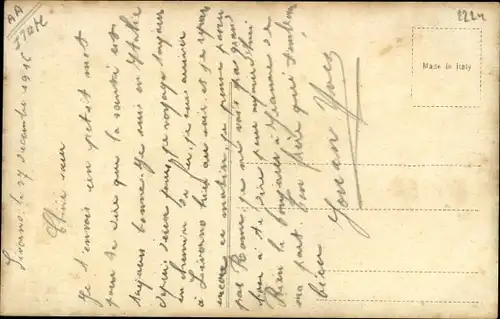 AA
ITAM
2224
Made in Italy
Livorno le 27 decembre 1916
Chère sœur
Je t'envois un petit mot
pour te dire que la santé est
toujours bonne. Je suis en Italie
depuis deux jours je voyage toujours
en chemin de fer je suis arrivé
à Livorno hier au soir et je repars
encore ce matin je pense passer
par Rome je ne vois pas grand
chose à te dire pour aujourd'hui
Bien le bonjour à Jeanne de
ma part. Ton frère qui t'embrasse
bien
Yves